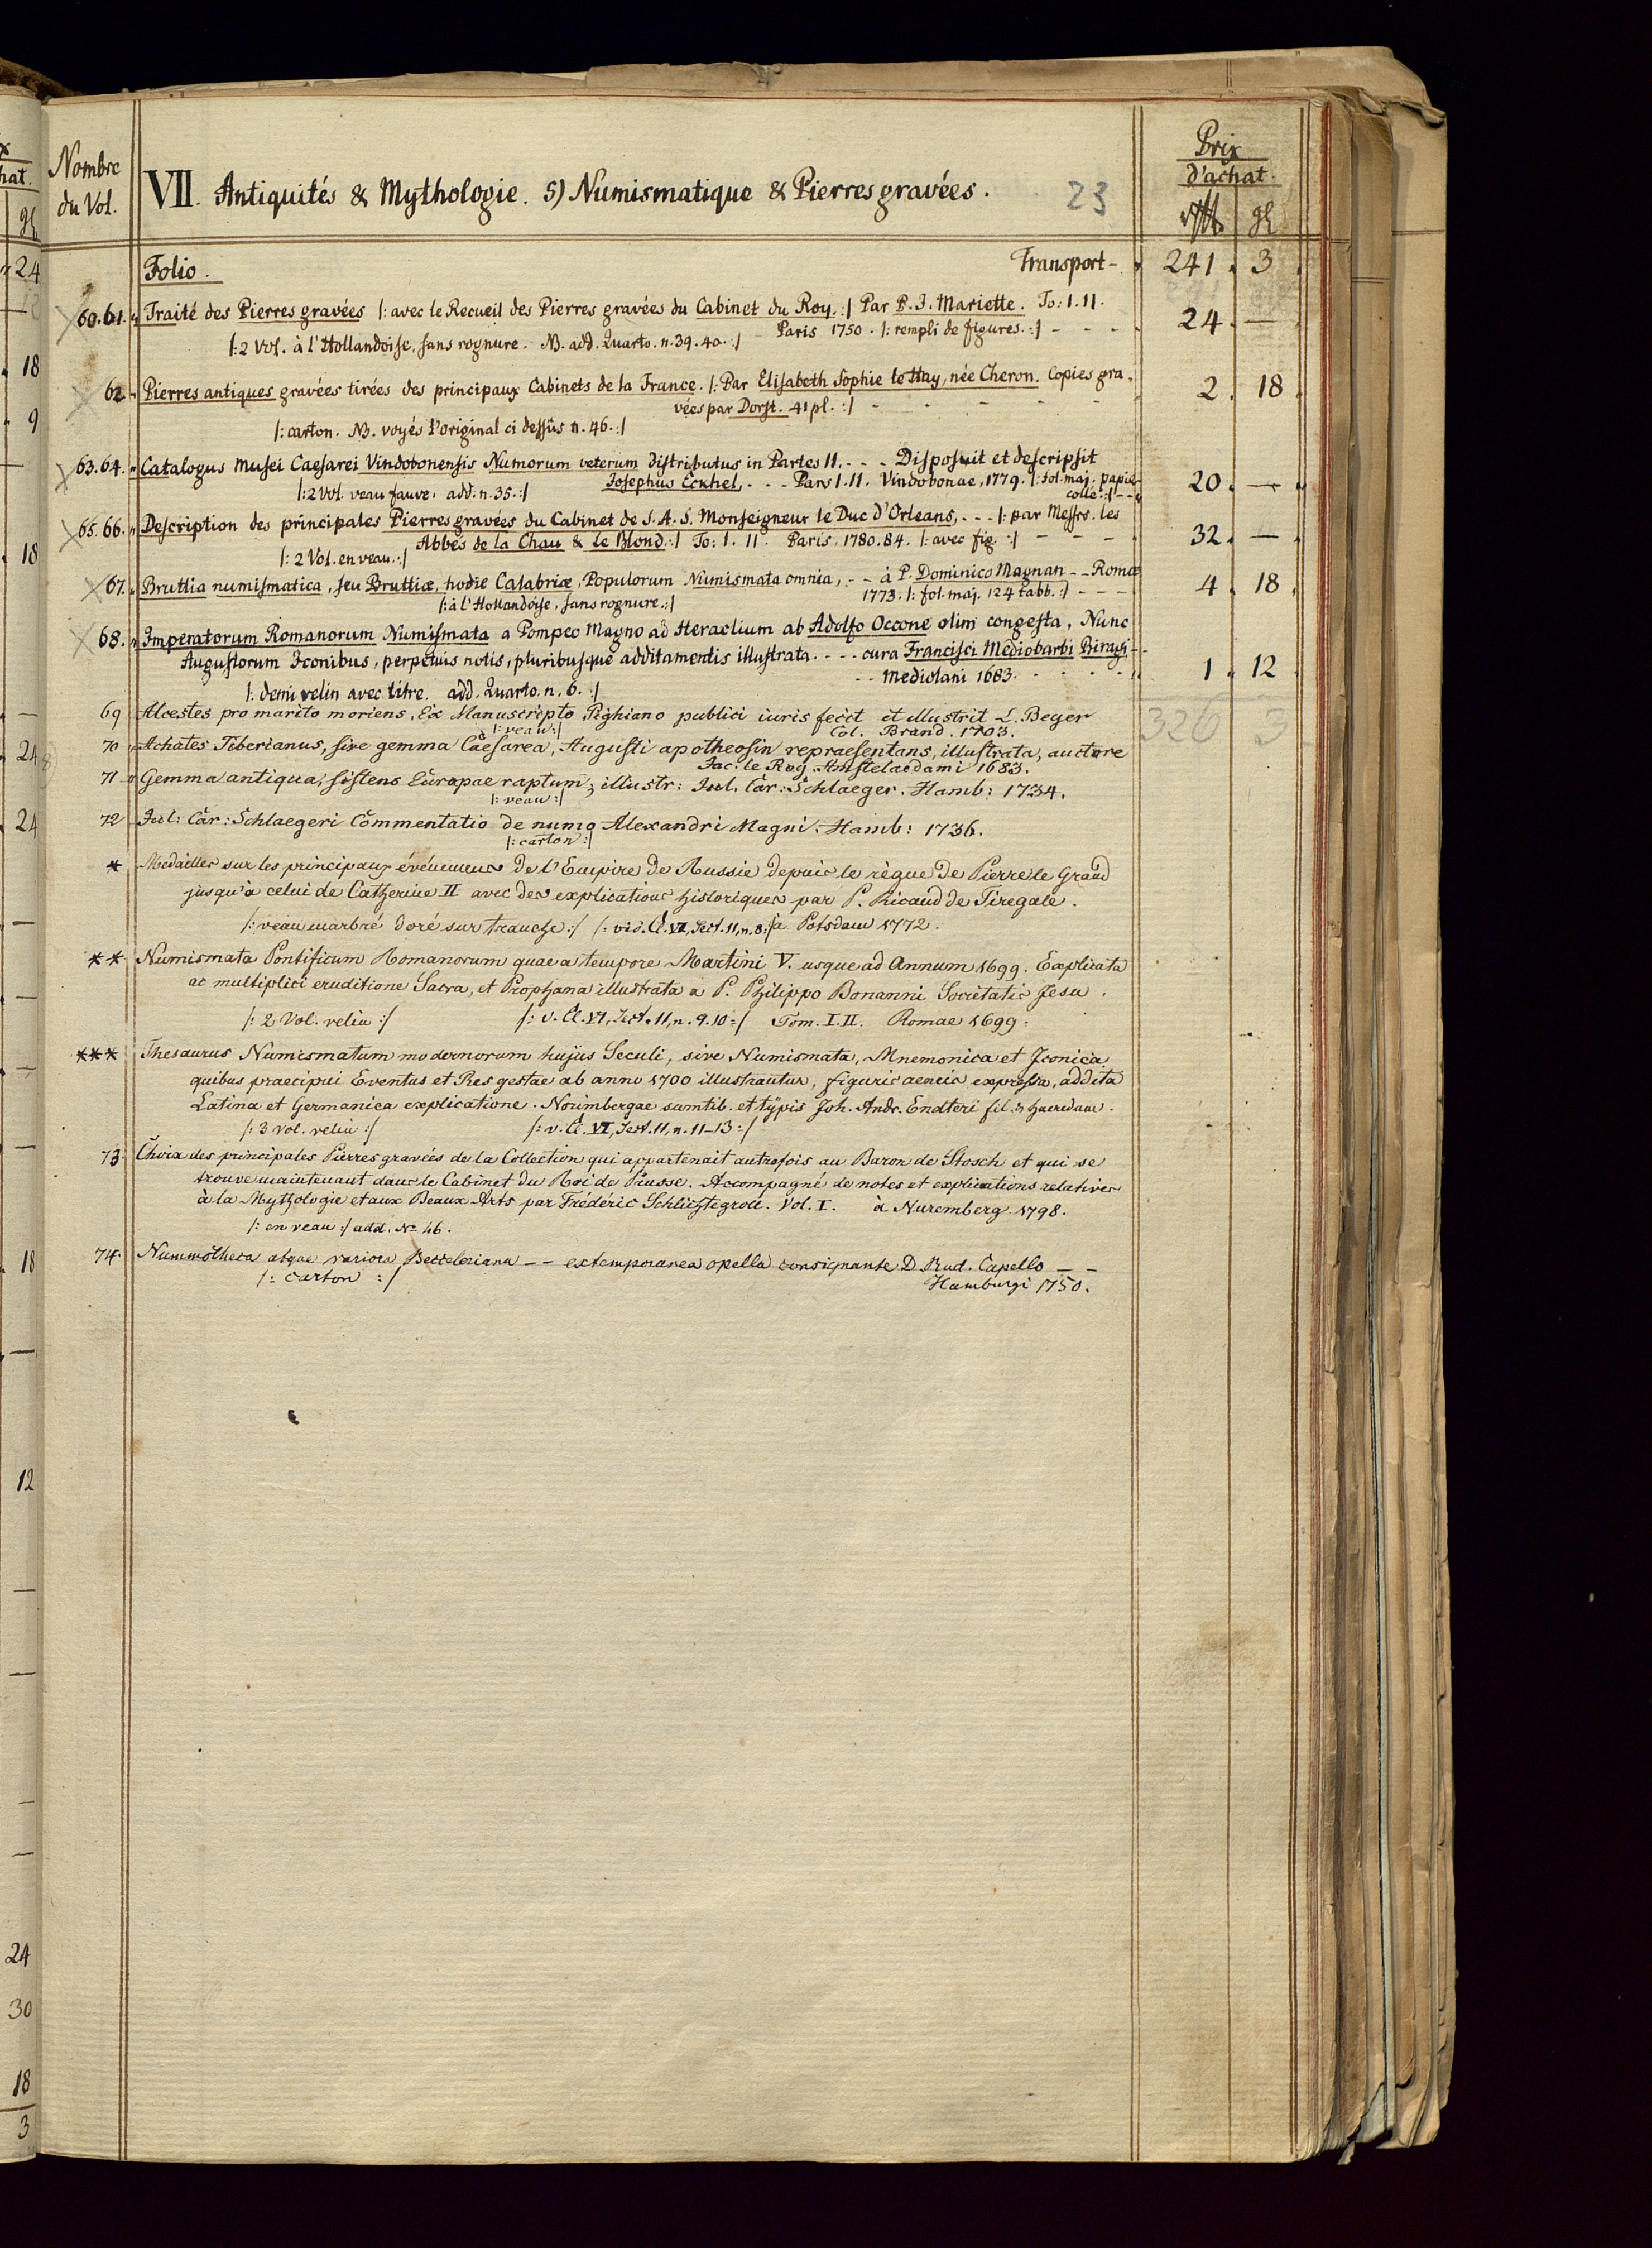 Nombre
du Vol.
VII. Antiquités & Mythologie. 5) Numismatique & Pierres gravées. 23
Prix
d'achat.
Folio. Transport - 241. 3
60.61. Traité des Pierres gravées |: avec le Recueil des Pierres gravées du Cabinet du Roy. :| Par P. J. Mariette. To: I. II.
Paris 1750. |: rempli de figures. :| - - - 24. —
|: 2 Vol. à l'Hollandoise, sans rognure. NB. add. Quarto. n. 39. 40. :|
62. Pierres antiques gravées tirées des principaux Cabinets de la France. |: Par Elisabeth Sophie le Hay, née Cheron. Copies gra-
vées par Dorst. 41 pl. :| - - - - - 2. 18
|: carton. NB. voyés l'original ci dessûs n. 46. :|
63.64. Catalogus Musei Caesarei Vindobonensis Numorum veterum distributus in Partes II. - - - Disposuit et descripsit
Josephus Eckhel, - - - Pars I. II. Vindobonae, 1779. |: fol. maj. papie
collé. :| - - 20. —
|: 2 Vol. veau fauve. add. n. 35. :|
65.66. Description des principales Pierres gravées du Cabinet de S. A. S. Monseigneur le Duc d'Orleans, - - - |: par Messrs. les
Abbés de la Chau & le Blond. :| To: I. II. Paris. 1780. 84. |: avec fig. :| - - - - 32. —
|: 2 Vol. en veau. :|
67. Bruttia numismatica, seu Bruttiæ, hodie Calabriæ, Populorum Numismata omnia, - - à P. Dominico Magnan - - Romæ
1773. |: fol. maj. 124 tabb. :| - - - - 4. 18
|: à l'Hollandoise, sans rognure. :|
68. Imperatorum Romanorum Numismata a Pompeo Magno ad Heraclium ab Adolfo Occone olim congesta, Nunc
Augustorum Iconibus, perpetuis notis, pluribusque additamentis illustrata. - - - cura Francisci Mediobarbi Biragi - -
- - Mediolani 1683. - - - - - 1. 12
|: demi velin avec titre. add. Quarto. n. 6. :|
69 Alcestes pro marito moriens, Ex Manuscripto Pighiano publici iuris fecit et illustrit L. Beger 326 3
|: veau :| Col. Brand. 1703.
70 Achates Tiberianus, sive gemma Caesarea, Augusti apotheosin repraesentans, illustrata, auctore
Jac: le Roy. Amstelaedami 1683.
71 Gemma antiqua, sistens Europae raptum; illustr: Jul. Car: Schlaeger. Hamb: 1734.
|: veau :|
72 Jul: Car: Schlaegeri Commentatio de numo Alexandri Magni. Hamb: 1736.
|: carton :|
* Medailles sur les principaux événemens de l'Empire de Russie depuis le règne de Pierre le Grand
jusqu'à celui de Catherine II avec des explications historiques par P. Ricaud de Tiregale.
|: veau marbré doré sur tranche :| |: vid. Cl. VI, Sect. 11, n. 8 :| à Potsdam 1772.
** Numismata Pontificum Romanorum quae a tempore Martini V. usque ad Annum 1699. Explicata
ac multiplici eruditione Sacra, et Prophana illustrata a P. Philippo Bonanni Societatis Jesu.
|: 2 Vol. velin :| |: v. Cl. VI, Sect. 11, n. 9. 10 :| Tom. I. II. Romae 1699.
*** Thesaurus Numismatum modernorum hujus Seculi, sive Numismata, Mnemonica et Iconica
quibus praecipui Eventus et Res gestae ab anno 1700 illustrantur, figuris aeneis expressa, addita
Latina et Germanica explicatione. Norimbergae sumtib. et typis Joh. Andr. Endteri fil. & haeredum.
|: 3 Vol. velin :| |: v. Cl. VI, Sect. 11, n. 11-13 :|
73. Choix des principales Pierres gravées de la Collection qui appartenait autrefois au Baron de Stosch et qui se
trouve maintenant dans le Cabinet du Roi de Prusse. Accompagné de notes et explications relatives
à la Mythologie et aux Beaux Arts par Frédéric Schlichtegroll. Vol. I. à Nuremberg 1798.
|: en veau :| add. No. 46.
74. Nummotheca atque rariora - - extemporanea opella consignante D. Rud. Capello - -
|: carton :| Hamburgi 1750.